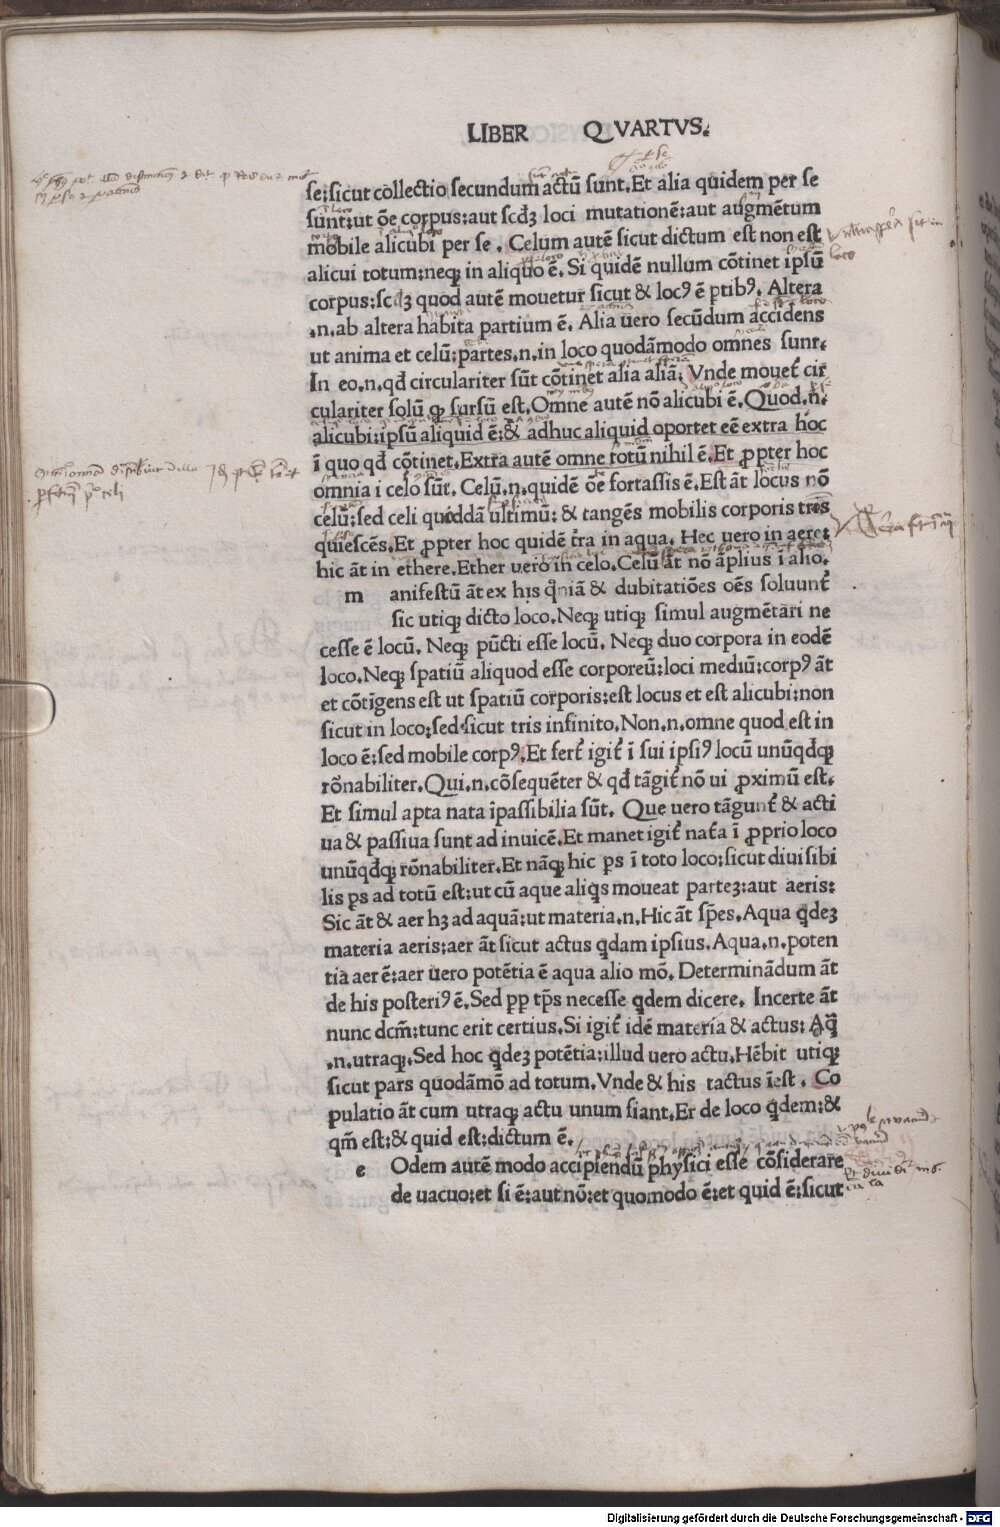 LIBER QVARTVS.
se: sicut collectio secundum actū sunt. Et alia quidem per se
sunt: ut õe corpus: aut scdʒ loci mutationē: aut augmētum
mobile alicubi per se. Celum autē sicut dictum est non est
alicui totum: neqꝫ in aliquo ē. Si quidē nullum cōtinet ipsū
corpus: scdʒ quod autē mouetur sicut & locꝰ ē ptibꝰ. Altera
.n. ab altera habita partium ē. Alia uero secūdum accidens
ut anima et celū: partes .n. in loco quodāmodo omnes sunt.
In eo .n. qđ circulariter sūt cōtinet alia aliā. Vnde mouet̄ cir
culariter solū qꝫ sursū est. Omne autē nō alicubi ē. Quod .n.
alicubi: ipsū aliquid ē: & adhuc aliquid oportet eē extra hoc
ī quo qđ cōtinet. Extra autē omne totū nihil ē. Et ꝓpter hoc
omnia i celo sūt. Celū .n. quidē õe fortassis ē. Est āt locus nō
celū: sed celi quoddā ultimū: & tangēs mobilis corporis tr̄is
quiescēs. Et ꝓpter hoc quidē t̄ra in aqua. Hec uero in aere:
hic āt in ethere. Ether uero in celo. Celū āt nō āplius ī alio.
m anifestū āt ex his qm̄iā & dubitatiōes oēs soluunt̄
sic utiqꝫ dicto loco. Neqꝫ utiqꝫ simul augmētari ne
cesse ē locū. Neqꝫ pūcti esse locū. Neqꝫ duo corpora in eodē
loco. Neqꝫ spatiū aliquod esse corporeū: loci mediū: corpꝰ āt
et cōtīgens est ut spatiū corporis: est locus et est alicubi: non
sicut in loco: sed sicut tris infinito. Non .n. omne quod est in
loco ē: sed mobile corpꝰ. Et fert̄ igit̄ ī sui ipsiꝰ locū unūqđqꝫ
rōnabiliter. Qui .n. cōsequēter & qđ tāgit̄ nō ui ꝓximū est.
Et simul apta nata īpassibilia sūt. Que uero tāgunt̄ & acti
ua & passiua sunt ad inuicē. Et manet igit̄ nat̄a ī ꝓprio loco
unūqđqꝫ rōnabiliter. Et nāqꝫ hic ꝑs ī toto loco: sicut diuisibi
lis ꝑs ad totū est: ut cū aque aliqͥs moueat partez: aut aeris:
Sic āt & aer hʒ ad aquā: ut materia .n. Hic āt sp̄es. Aqua qͥdez
materia aeris: aer āt sicut actus qͥdam ipsius. Aqua .n. poten
tia aer ē: aer uero potētia ē aqua alio mō. Determinādum āt
de his posteriꝰ ē. Sed pp tp̄s necesse qͥdem dicere. Incerte āt
nunc dcm̄: tunc erit certius. Si igit̄ idē materia & actus: Aq̄
.n. utraqꝫ. Sed hoc qͥdez potētia: illud uero actu. Hēbit utiqꝫ
sicut pars quodāmō ad totum. Vnde & his tactus īest. Co
pulatio āt cum utraqꝫ actu unum fiant. Et de loco qͥdem: &
qm̄ est: & quid est: dictum ē.
e Odem autē modo accipiendū physici esse cōsiderare
de uacuo: et si ē: aut nō: et quomodo ē: et quid ē: sicut
Digitalisierung gefördert durch die Deutsche Forschungsgemeinschaft - DFG